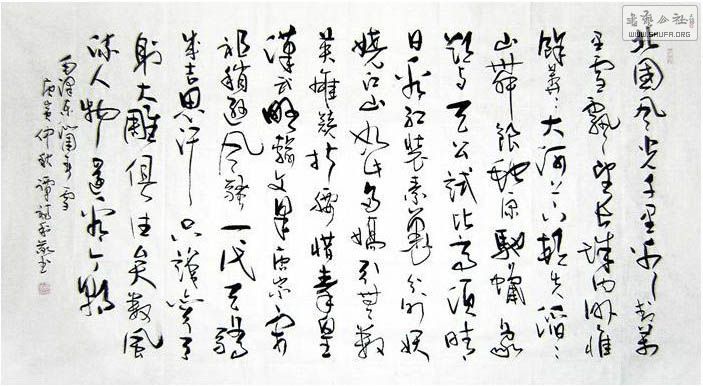 北國风光千里冰封萬
里雪飘望长城内外惟
餘莽莽大河上下頓失滔滔
山舞银蛇原驰蠟象
欲与天公试比高须晴
日看红装素裹分外妖
娆江山如此多娇引无數
英雄競折腰惜秦皇
漢武略輸文采唐宗宋
祖稍逊风骚一代天骄
成吉思汗只識弯弓
射大雕俱往矣數风
流人物還看今朝
毛泽东沁园春雪
庚寅仲秋 谭
書藝公社
WWW.SHUFA.ORG